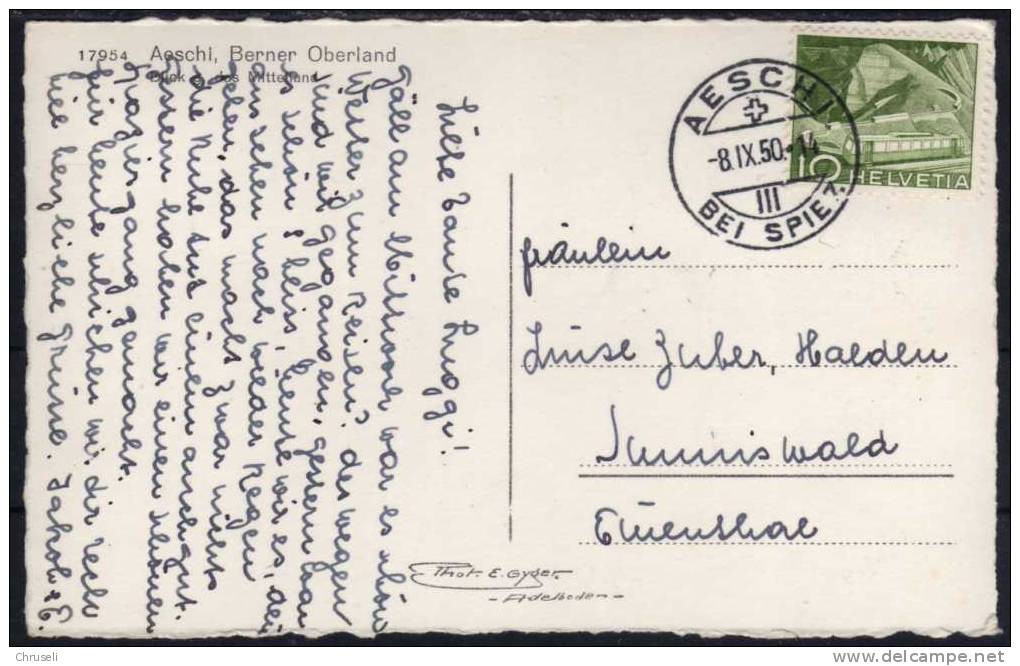 17954 Aeschi, Berner Oberland
Blick a. das Mittelland
Liebe Tante Luoggi!
Gäll am Mittwoch war es schön
Wetter zum Reisen? deswegen
sind wir gegangen, gestern war
es schön & heiss, heute will es, dei
aus sehen nach wieder Regen
geben, das macht zwar nichts
die Ruhe tut einem auch gut.
Gestern haben wir einen schönen
Spaziergang gemacht.
Für heute schicken wir dir recht
viele herzliche Grüsse. Jakob & E.
AESCHI
-8.IX.50.-14
III
BEI SPIEZ
10 HELVETIA
Fräulein
Luise Zuber, Halden
Sumiswald
Emmenthal
Phot. E. Gyger.
- Adelboden -
Chruseli
www.delcampe.net